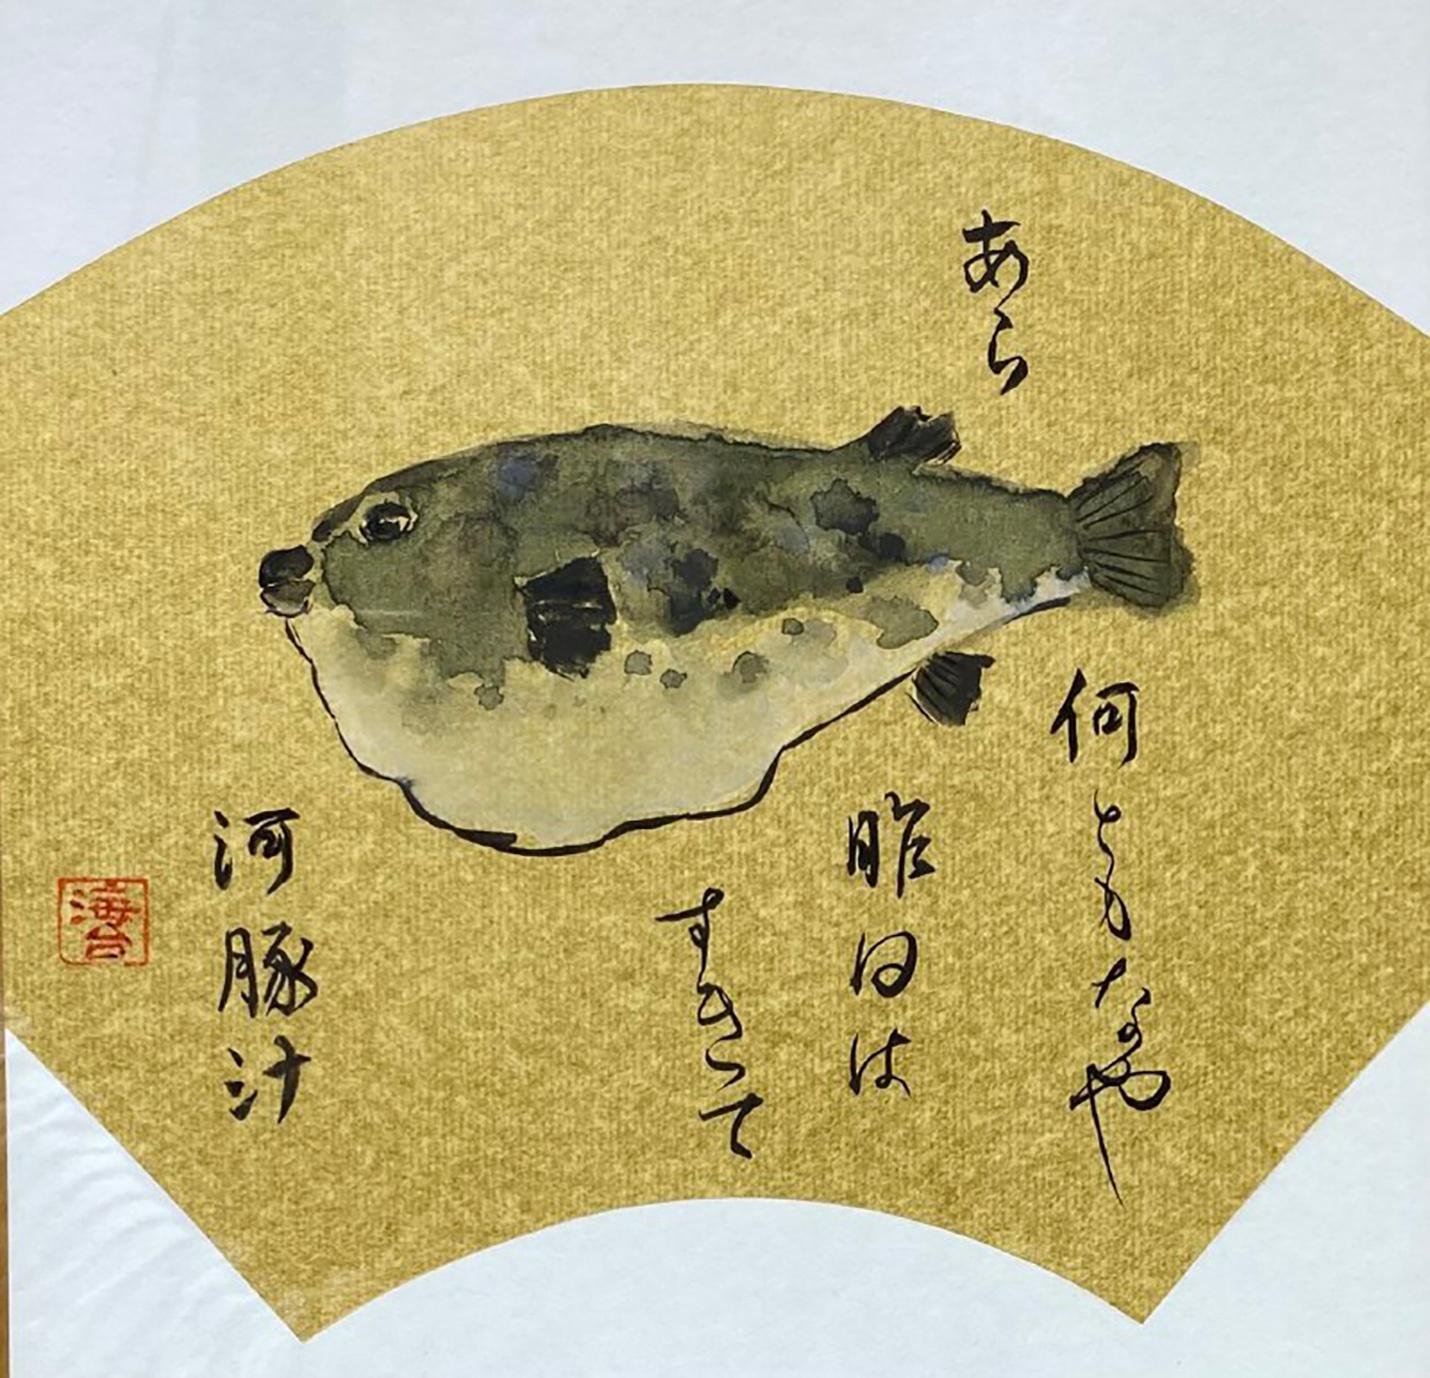 あら
何ともなや
昨日は
すきて
河豚汁